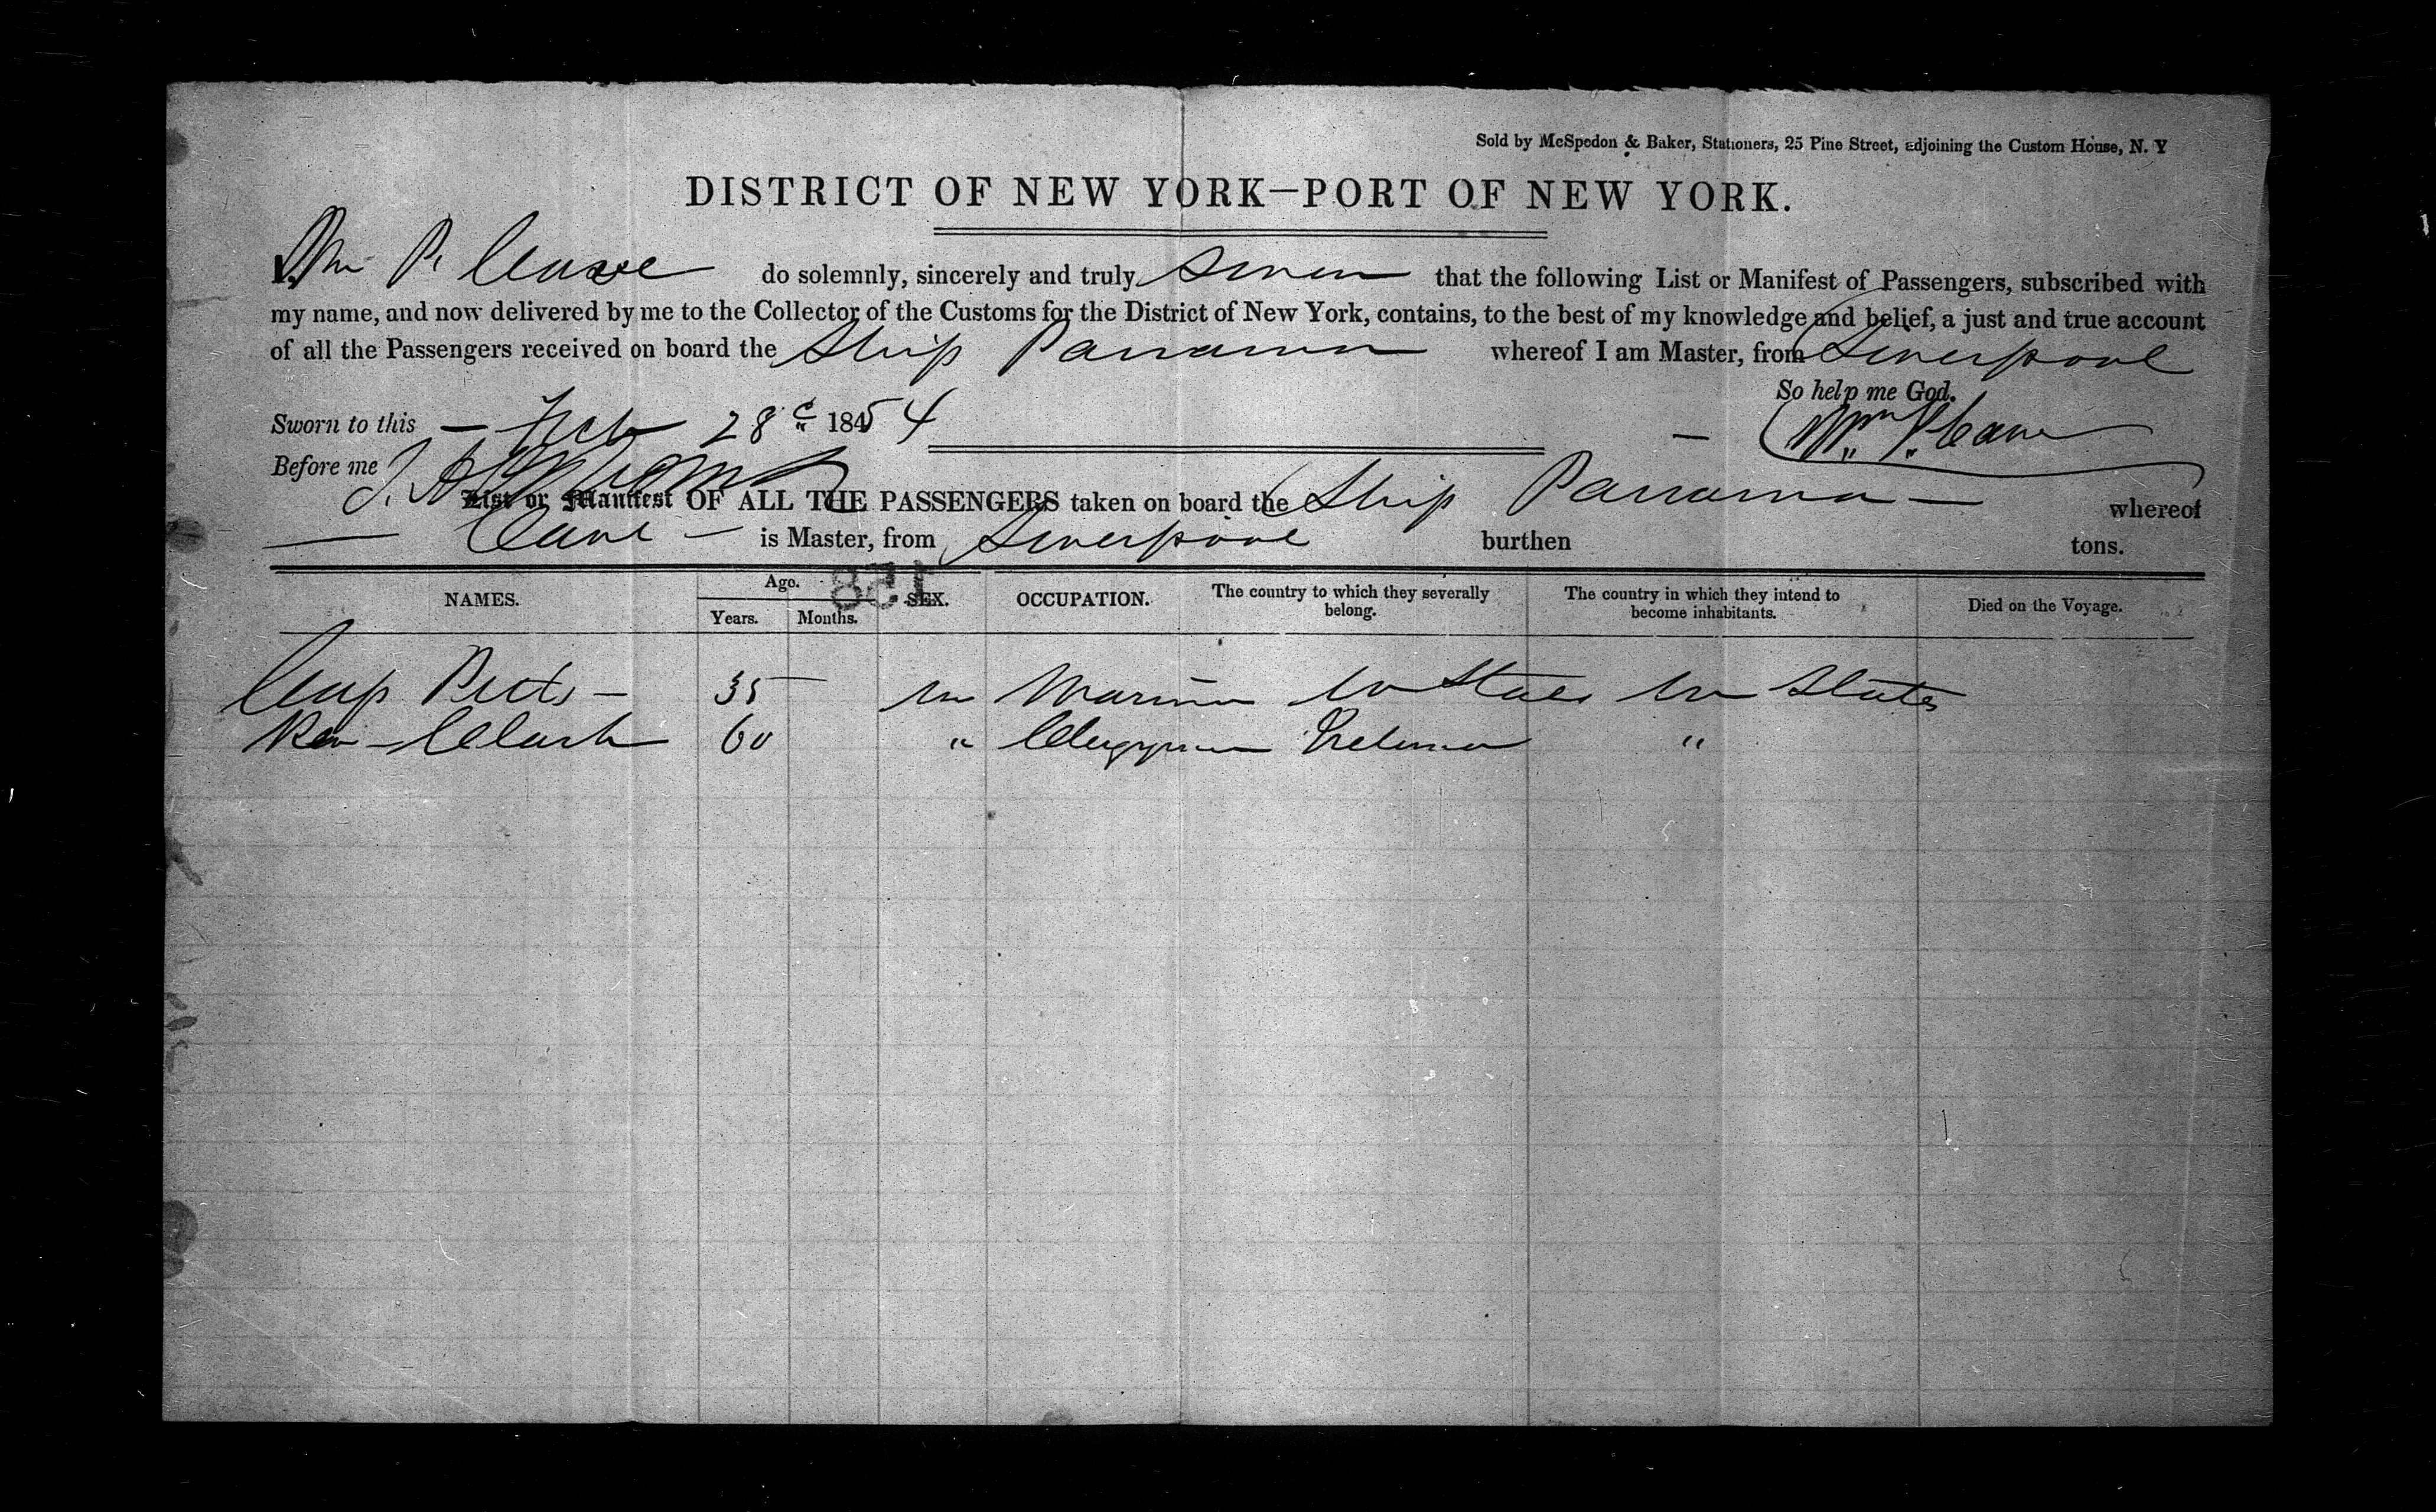 Sold by McSpedon & Baker, Stationers, 25 Pine Street, adjoining the Custom House, N. Y
DISTRICT OF NEW YORK—PORT OF NEW YORK.
I, Wm P. Cave do solemnly, sincerely and truly swear that the following List or Manifest of Passengers, subscribed with
my name, and now delivered by me to the Collector of the Customs for the District of New York, contains, to the best of my knowledge and belief, a just and true account
of all the Passengers received on board the Ship Panama whereof I am Master, from Liverpool
So help me God.
Sworn to this – Feb 28 1854 – Wm P. Cave
Before me
List or Manifest OF ALL THE PASSENGERS taken on board the Ship Panama – whereof
– Cave – is Master, from Liverpool burthen tons.
158
NAMES. Age. Years. Months. SEX. OCCUPATION. The country to which they severally belong. The country in which they intend to become inhabitants. Died on the Voyage.
Cap Petts – 35 m Mariner U States U States
Rev – Clark 60 " Clergyman Ireland "